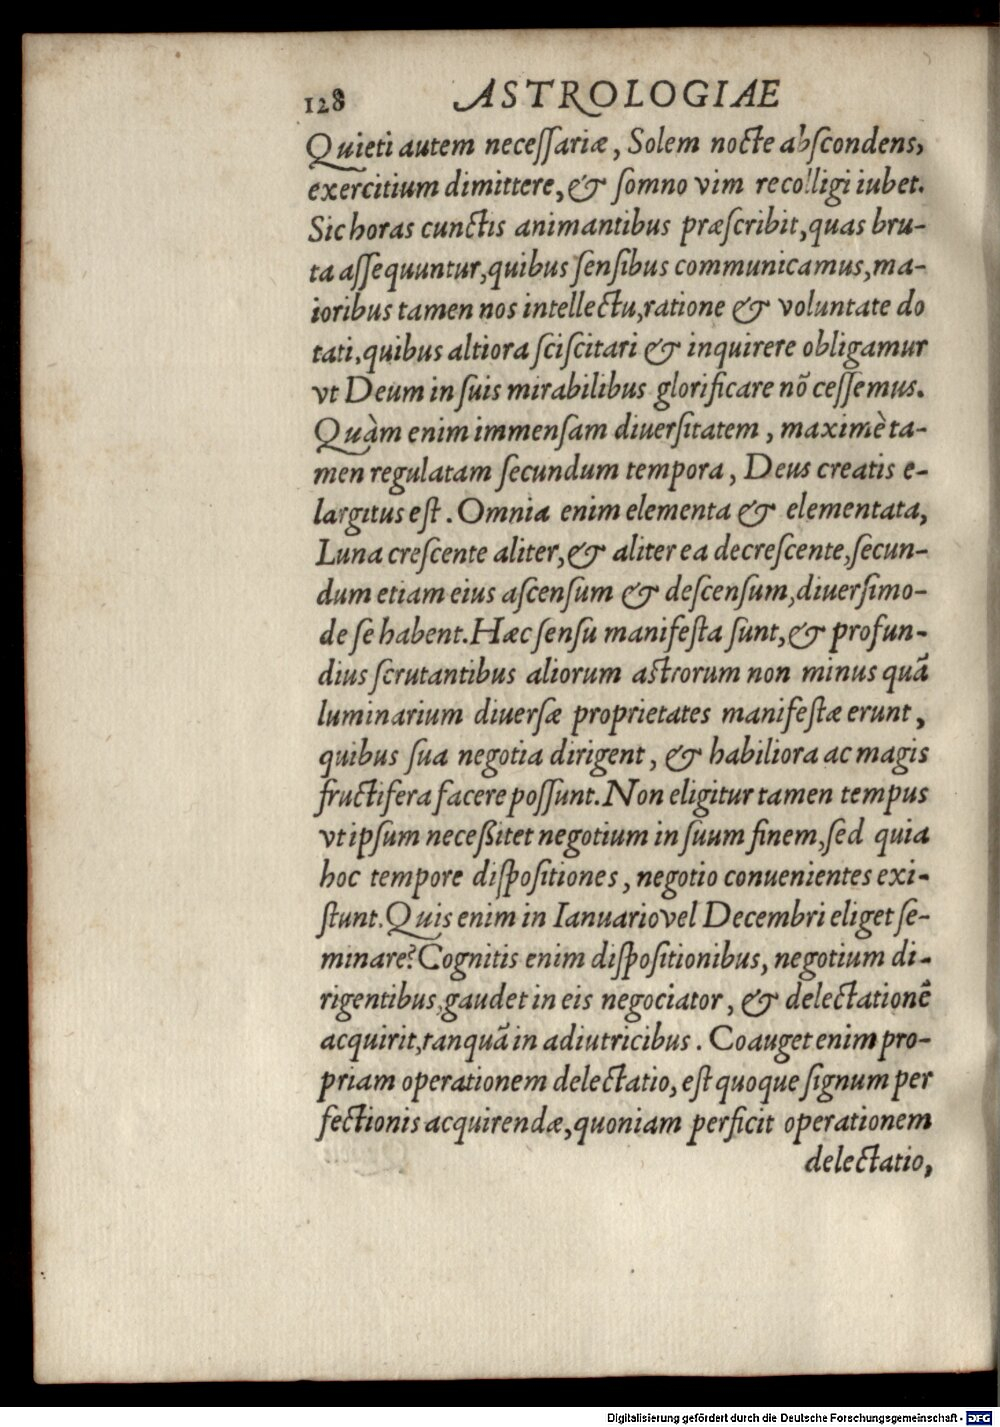 128 ASTROLOGIAE
Quieti autem neceſſariæ, Solem nocte abſcondens,
exercitium dimittere, & ſomno vim recolligi iubet.
Sic horas cunctis animantibus præſcribit, quas bru-
ta aſſequuntur, quibus ſenſibus communicamus, ma-
ioribus tamen nos intellectu, ratione & voluntate do
tati, quibus altiora ſciſcitari & inquirere obligamur
vt Deum in ſuis mirabilibus glorificare nõ ceſſemus.
Quàm enim immenſam diuerſitatem, maximè ta-
men regulatam ſecundum tempora, Deus creatis e-
largitus eſt. Omnia enim elementa & elementata,
Luna creſcente aliter, & aliter ea decreſcente, ſecun-
dum etiam eius aſcenſum & deſcenſum, diuerſimo-
de ſe habent. Hæc ſenſu manifeſta ſunt, & profun-
dius ſcrutantibus aliorum aſtrorum non minus quã
luminarium diuerſæ proprietates manifeſtæ erunt,
quibus ſua negotia dirigent, & habiliora ac magis
fructifera facere poſſunt. Non eligitur tamen tempus
vt ipſum neceßitet negotium in ſuum finem, ſed quia
hoc tempore diſpoſitiones, negotio conuenientes exi-
ſtunt. Quis enim in Ianuario vel Decembri eliget ſe-
minare? Cognitis enim diſpoſitionibus, negotium di-
rigentibus, gaudet in eis negociator, & delectationẽ
acquirit, tanquã in adiutricibus. Coauget enim pro-
priam operationem delectatio, eſt quoque ſignum per
fectionis acquirendæ, quoniam perficit operationem
delectatio,
Digitalisierung gefördert durch die Deutsche Forschungsgemeinschaft - DFG